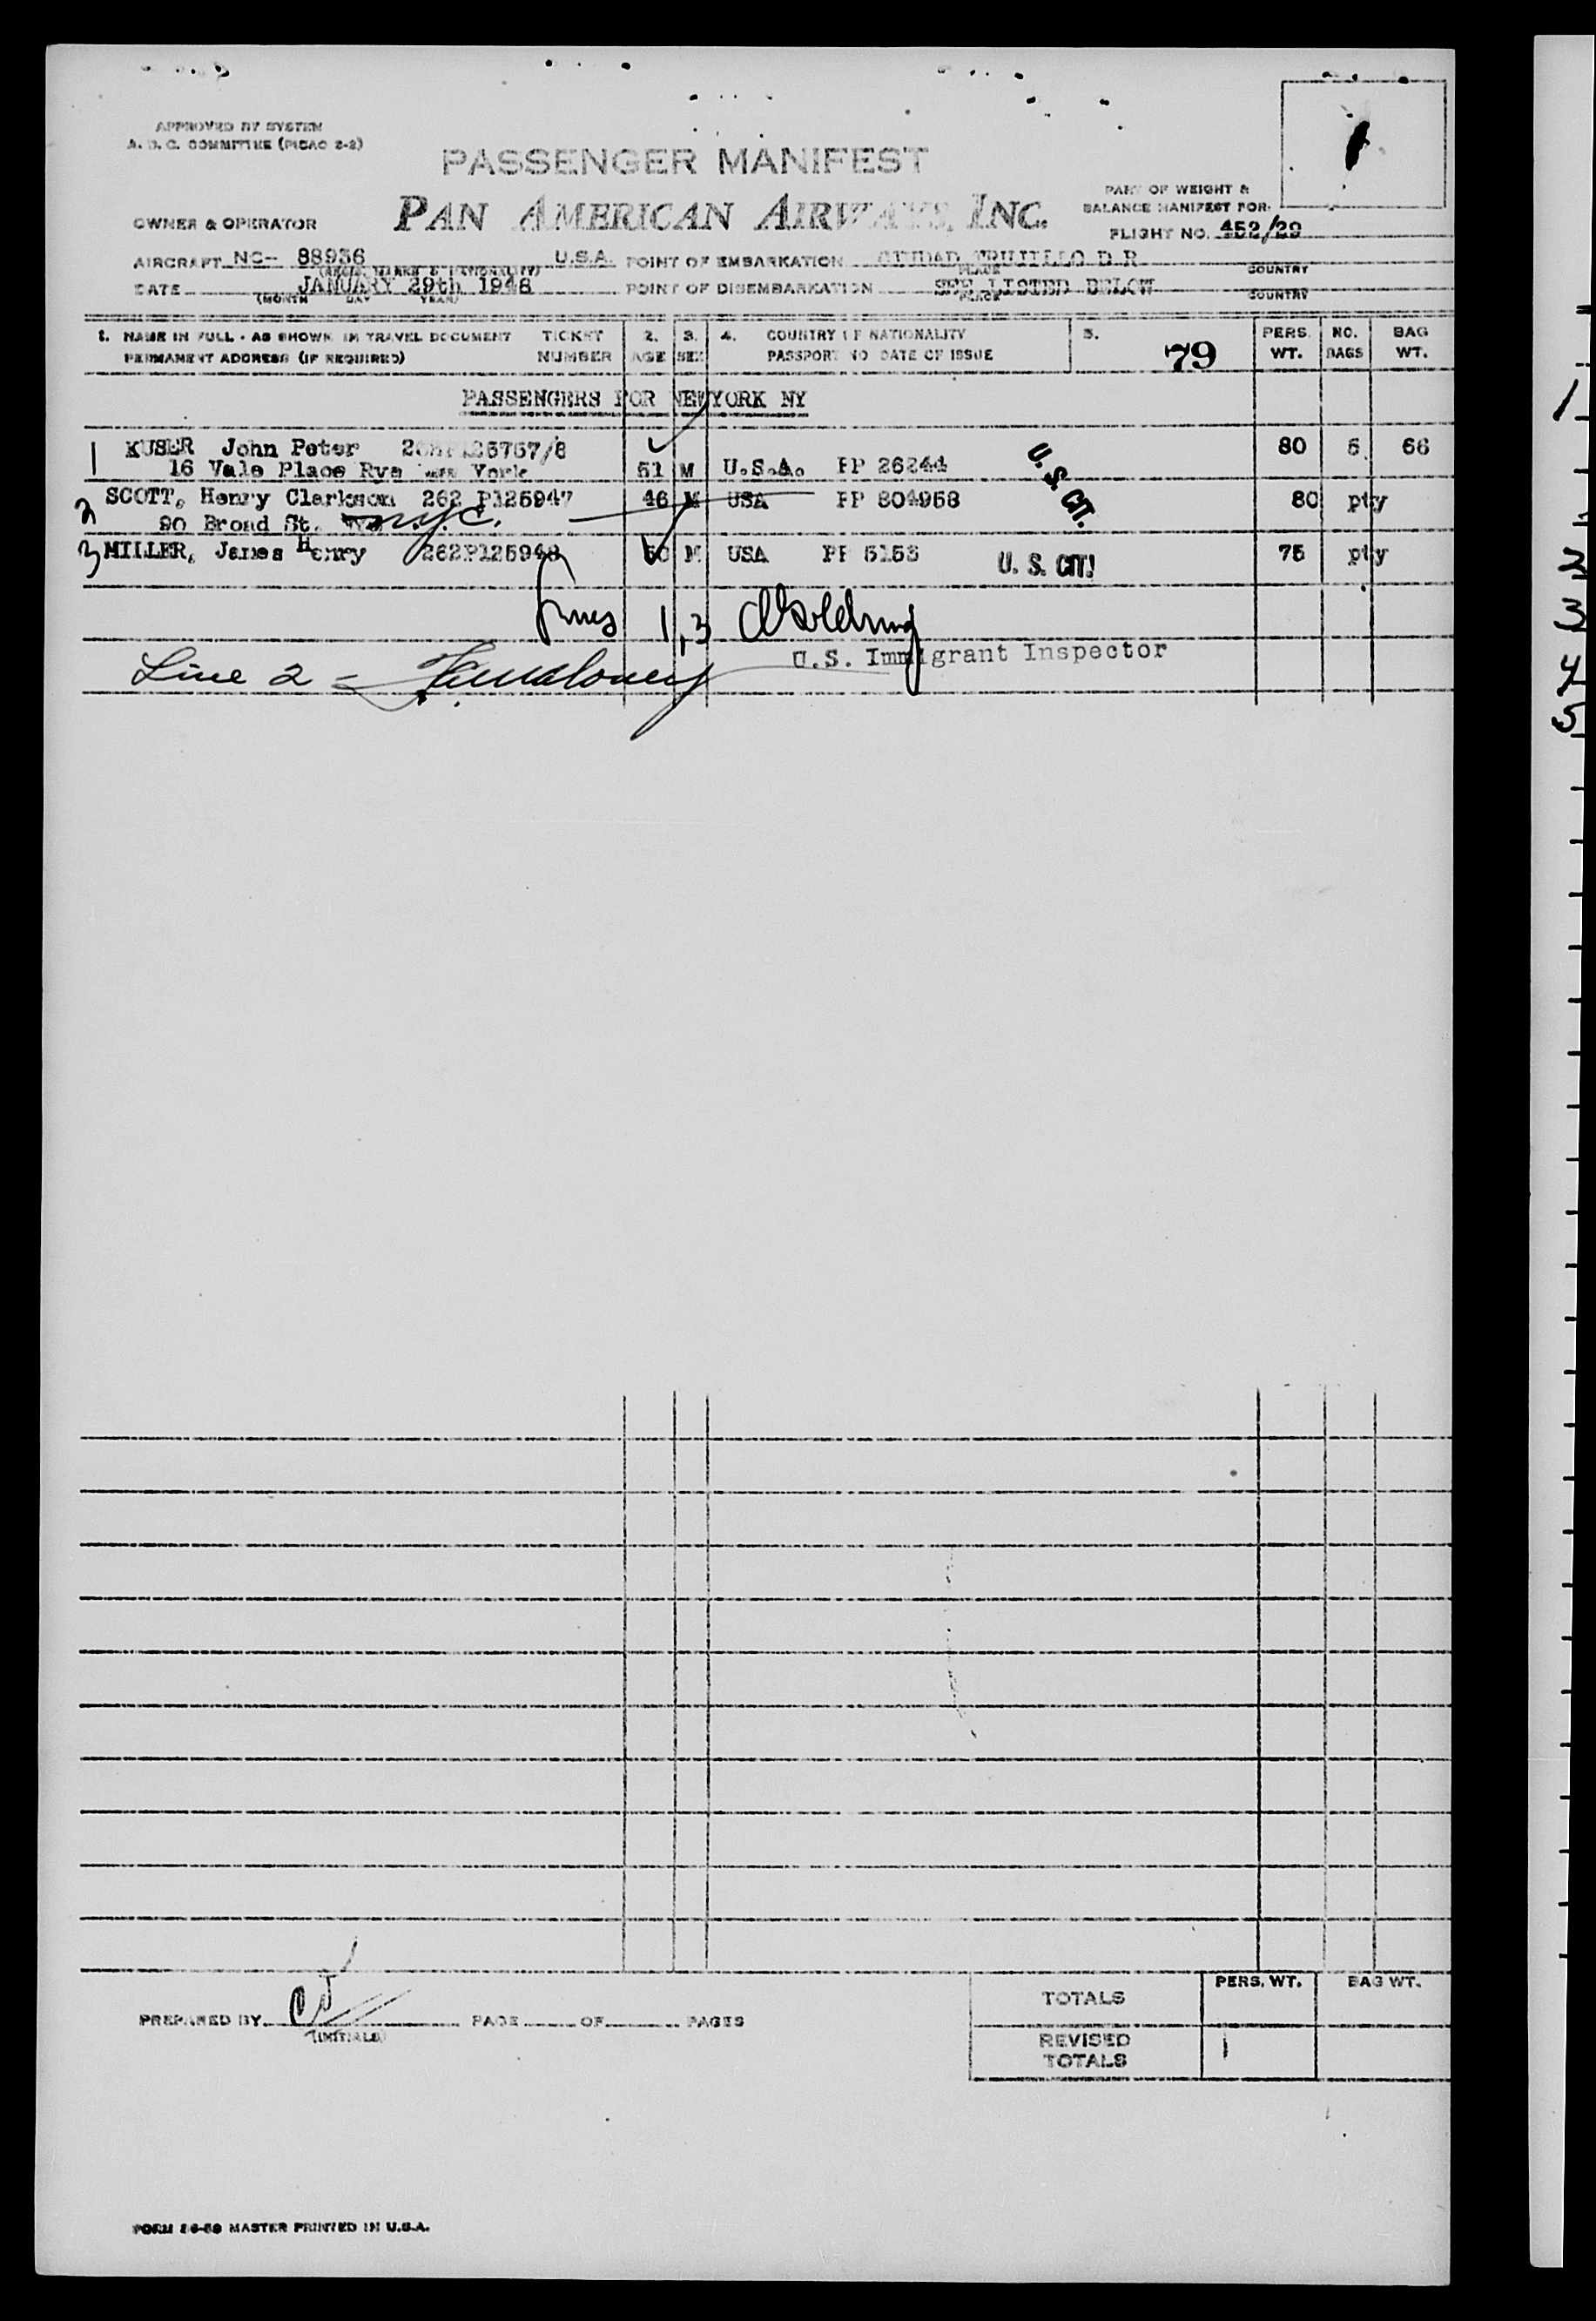 APPROVED BY SYSTEM
A. D. C. COMMITTEE (PICAO 2-2)
PASSENGER MANIFEST
PAN AMERICAN AIRWAYS, INC.
OWNER & OPERATOR
PART OF WEIGHT &
BALANCE MANIFEST FOR:
FLIGHT NO. 452/29
AIRCRAFT NC-- 88936 U.S.A. POINT OF EMBARKATION CIUDAD TRUJILLO D.R.
(REGIS. MARKS & NATIONALITY) PLACE COUNTRY
DATE JANUARY 29th 1948 POINT OF DISEMBARKATION SEE LISTED BELOW
(MONTH DAY YEAR) PLACE COUNTRY
1. NAME IN FULL - AS SHOWN IN TRAVEL DOCUMENT TICKET 2. 3. 4. COUNTRY OF NATIONALITY 5. PERS. NO. BAG
PERMANENT ADDRESS (IF REQUIRED) NUMBER AGE SEX PASSPORT NO DATE OF ISSUE 79 WT. BAGS WT.
PASSENGERS FOR NEWYORK NY
1 KUSER John Peter 80 5 66
16 Vale Place Rye York 51 M U.S.A. PP 26244 U.S. CIT.
2 SCOTT, Henry Clarkson 262 P125947 46 M USA PP 804958 80 pty
90 Broad St. n.y.c.
3 MILLER, James Henry 262P125948 50 M USA PP 5153 U. S. CIT! 75 pty
Lines 1,3 Golding
U.S. Immigrant Inspector
Line 2 -
PREPARED BY CJ PAGE OF PAGES
(INITIALS)
TOTALS PERS. WT. BAG WT.
REVISED
TOTALS
FORM 26-59 MASTER PRINTED IN U.S.A.
1
2
3
4
5